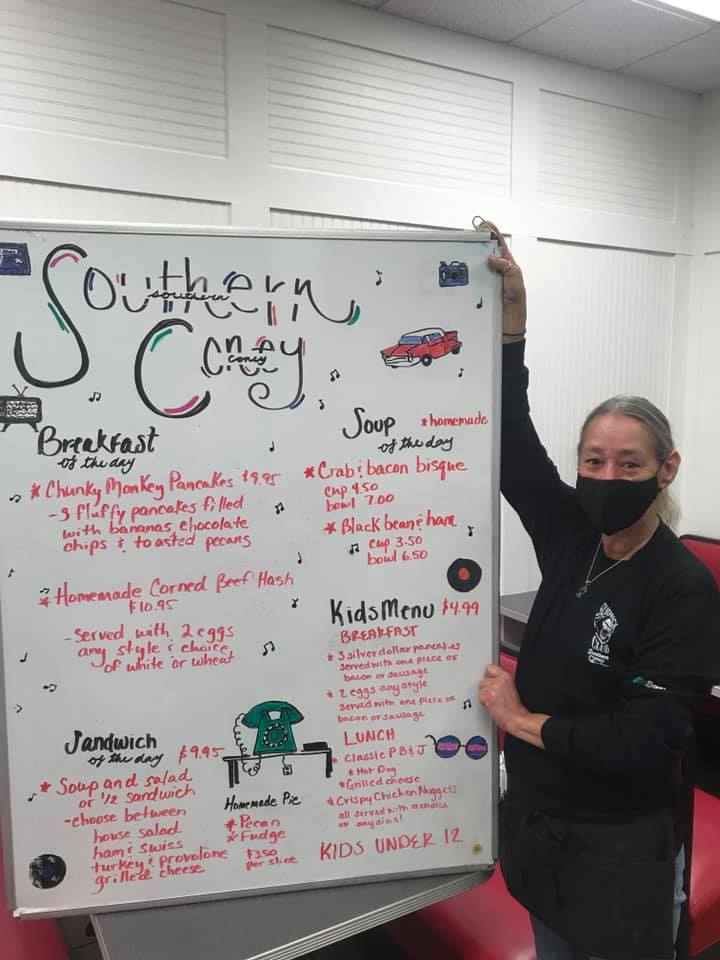 Southern
southern
Coney
coney
Breakfast
of the day
* Chunky Monkey Pancakes $9.95
- 3 fluffy pancakes filled
with bananas, chocolate
chips & toasted pecans
* Homemade Corned Beef Hash
$10.95
- served with 2 eggs
any style & choice
of white or wheat
Sandwich
of the day $9.95
* Soup and salad
or 1/2 sandwich
- choose between
house salad
ham & swiss
turkey & provolone
grilled cheese
Homemade Pie
* Pecan
* Fudge
$3.50
per slice
Soup *homemade
of the day
* Crab & bacon bisque
cup 4.50
bowl 7.00
* Black bean & ham
cup 3.50
bowl 6.50
Kids Menu $4.99
BREAKFAST
* 3 silver dollar pancakes
served with one piece of
bacon or sausage
* 2 eggs any style
served with one piece of
bacon or sausage
LUNCH
* Classic PB & J
* Hot Dog
* Grilled cheese
* Crispy Chicken Nuggets
all served with a choice
KIDS UNDER 12
Southern
Coney